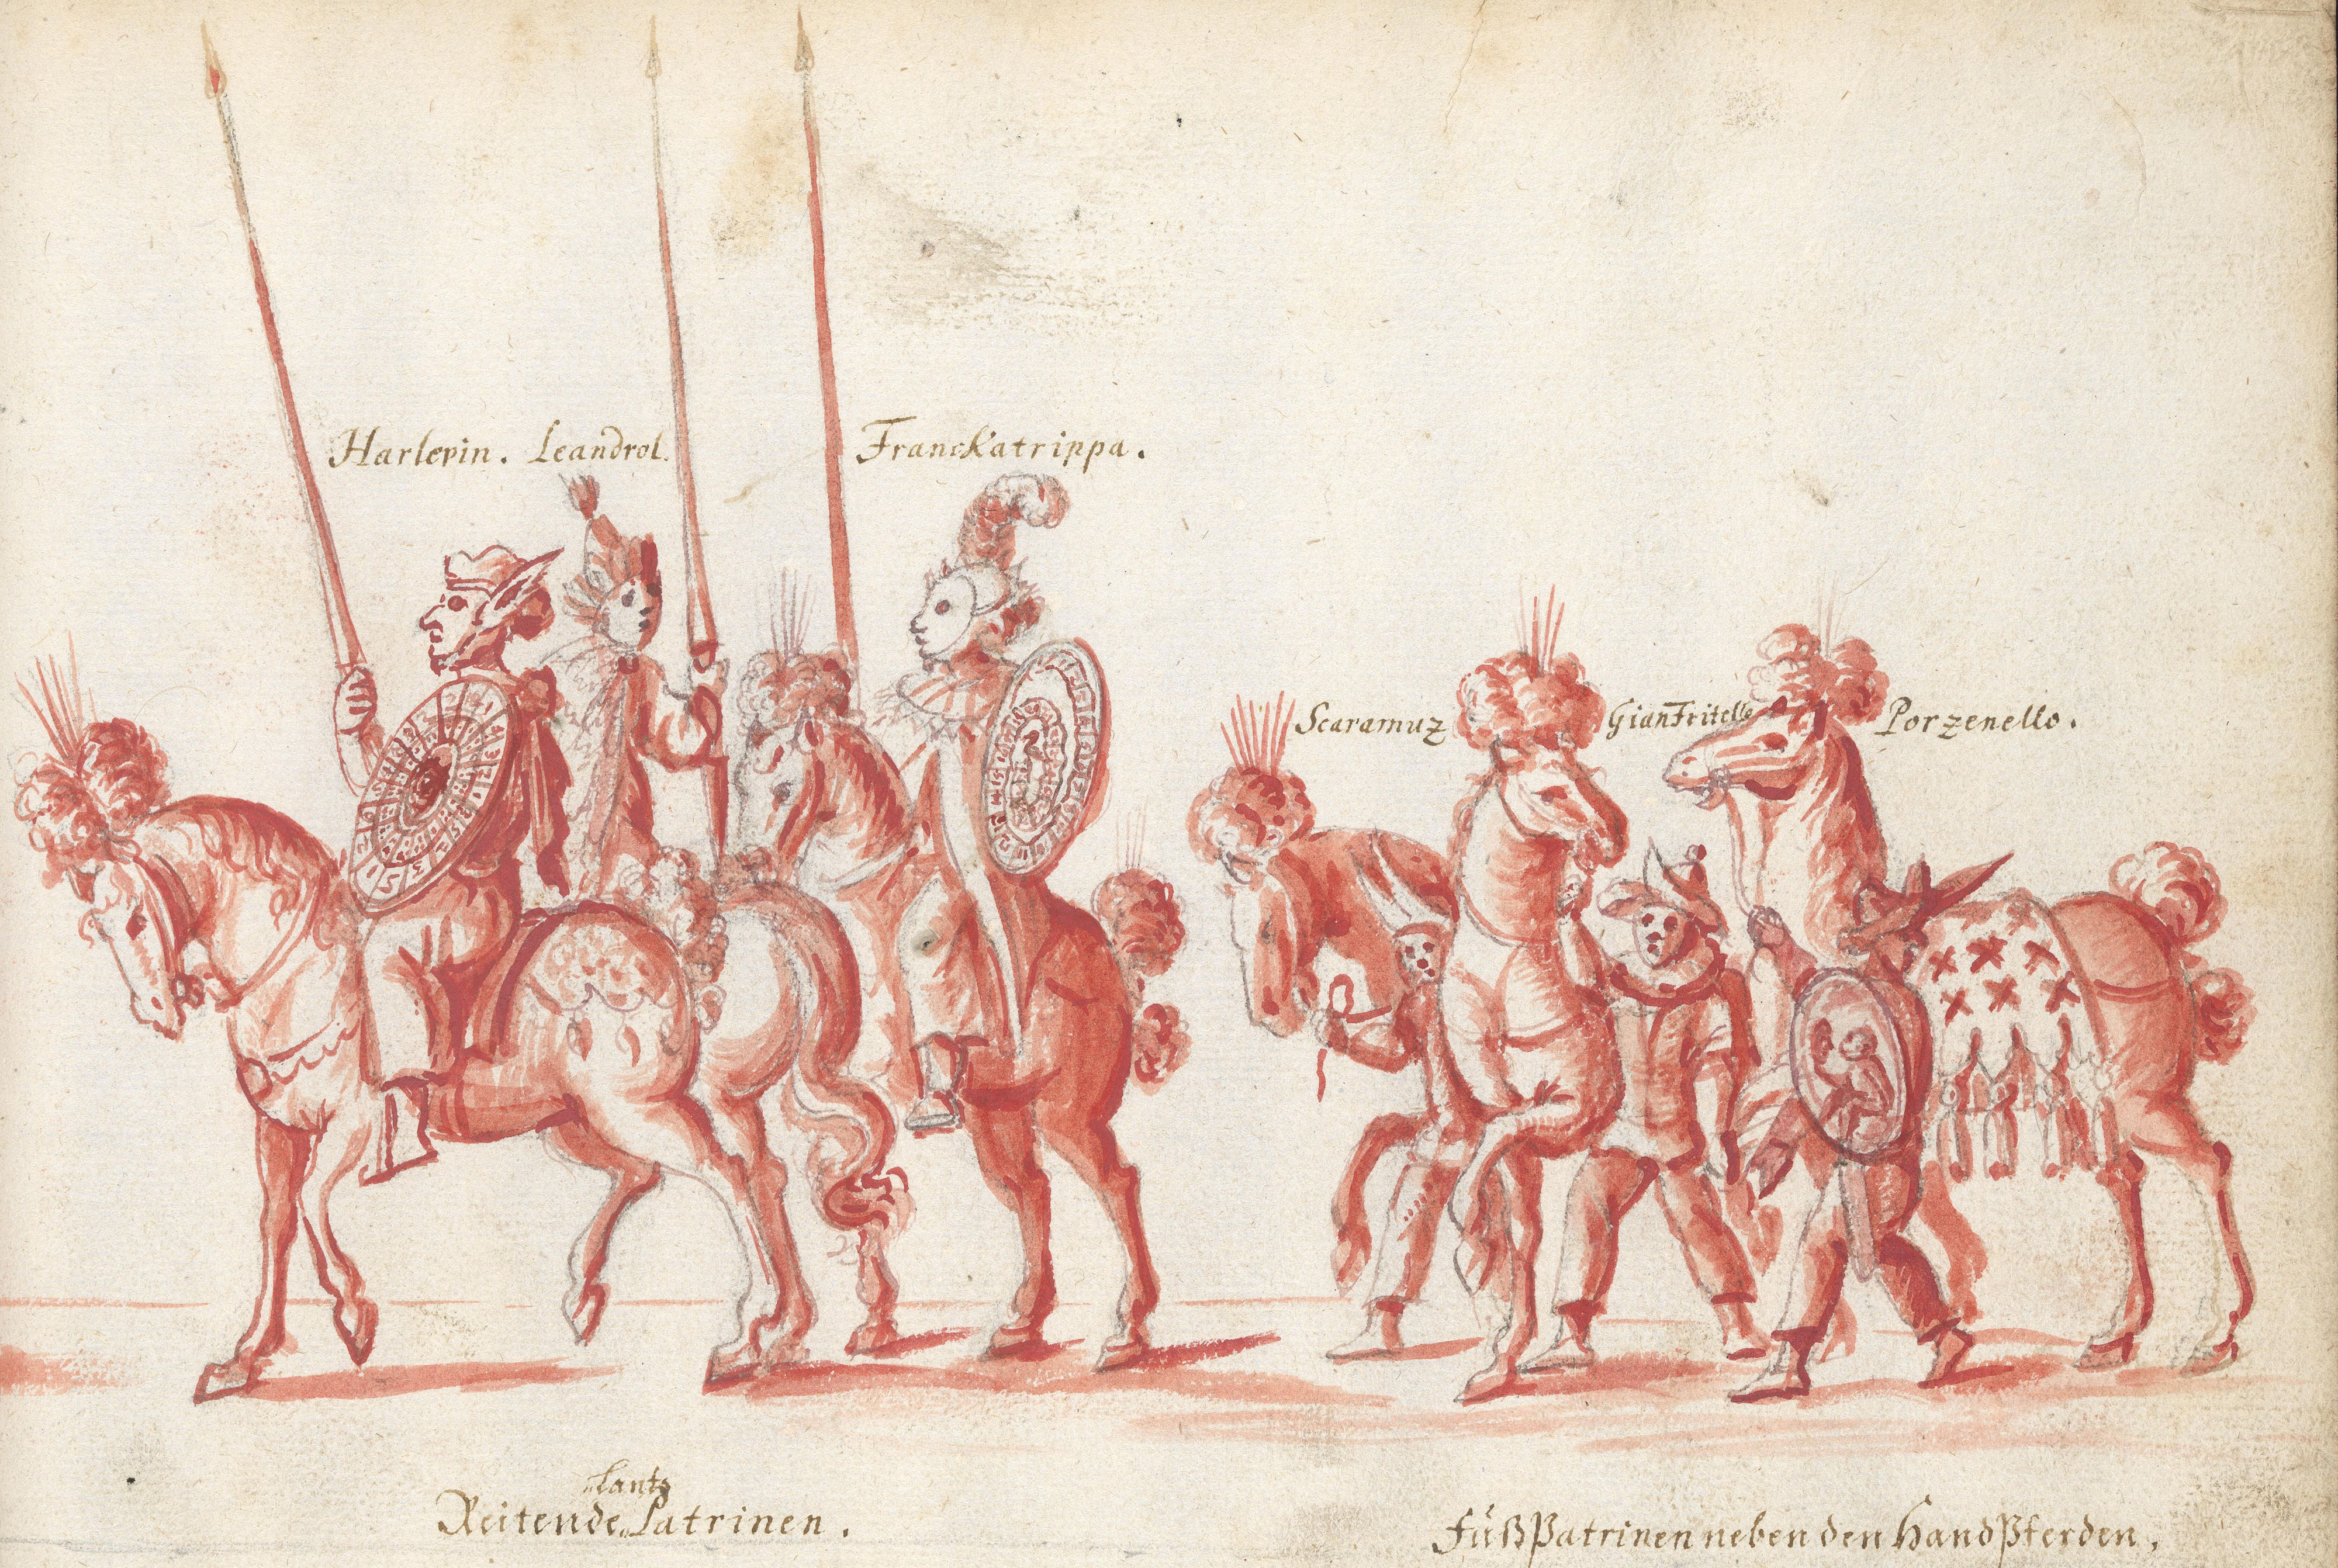 Harlepin. Leandrol.
Franckatrippa.
Scaramuz
Gian Fritello
Porzenello.
Lantz
Reitende Patrinen.
Füß Patrinen neben den Hand Pferden.